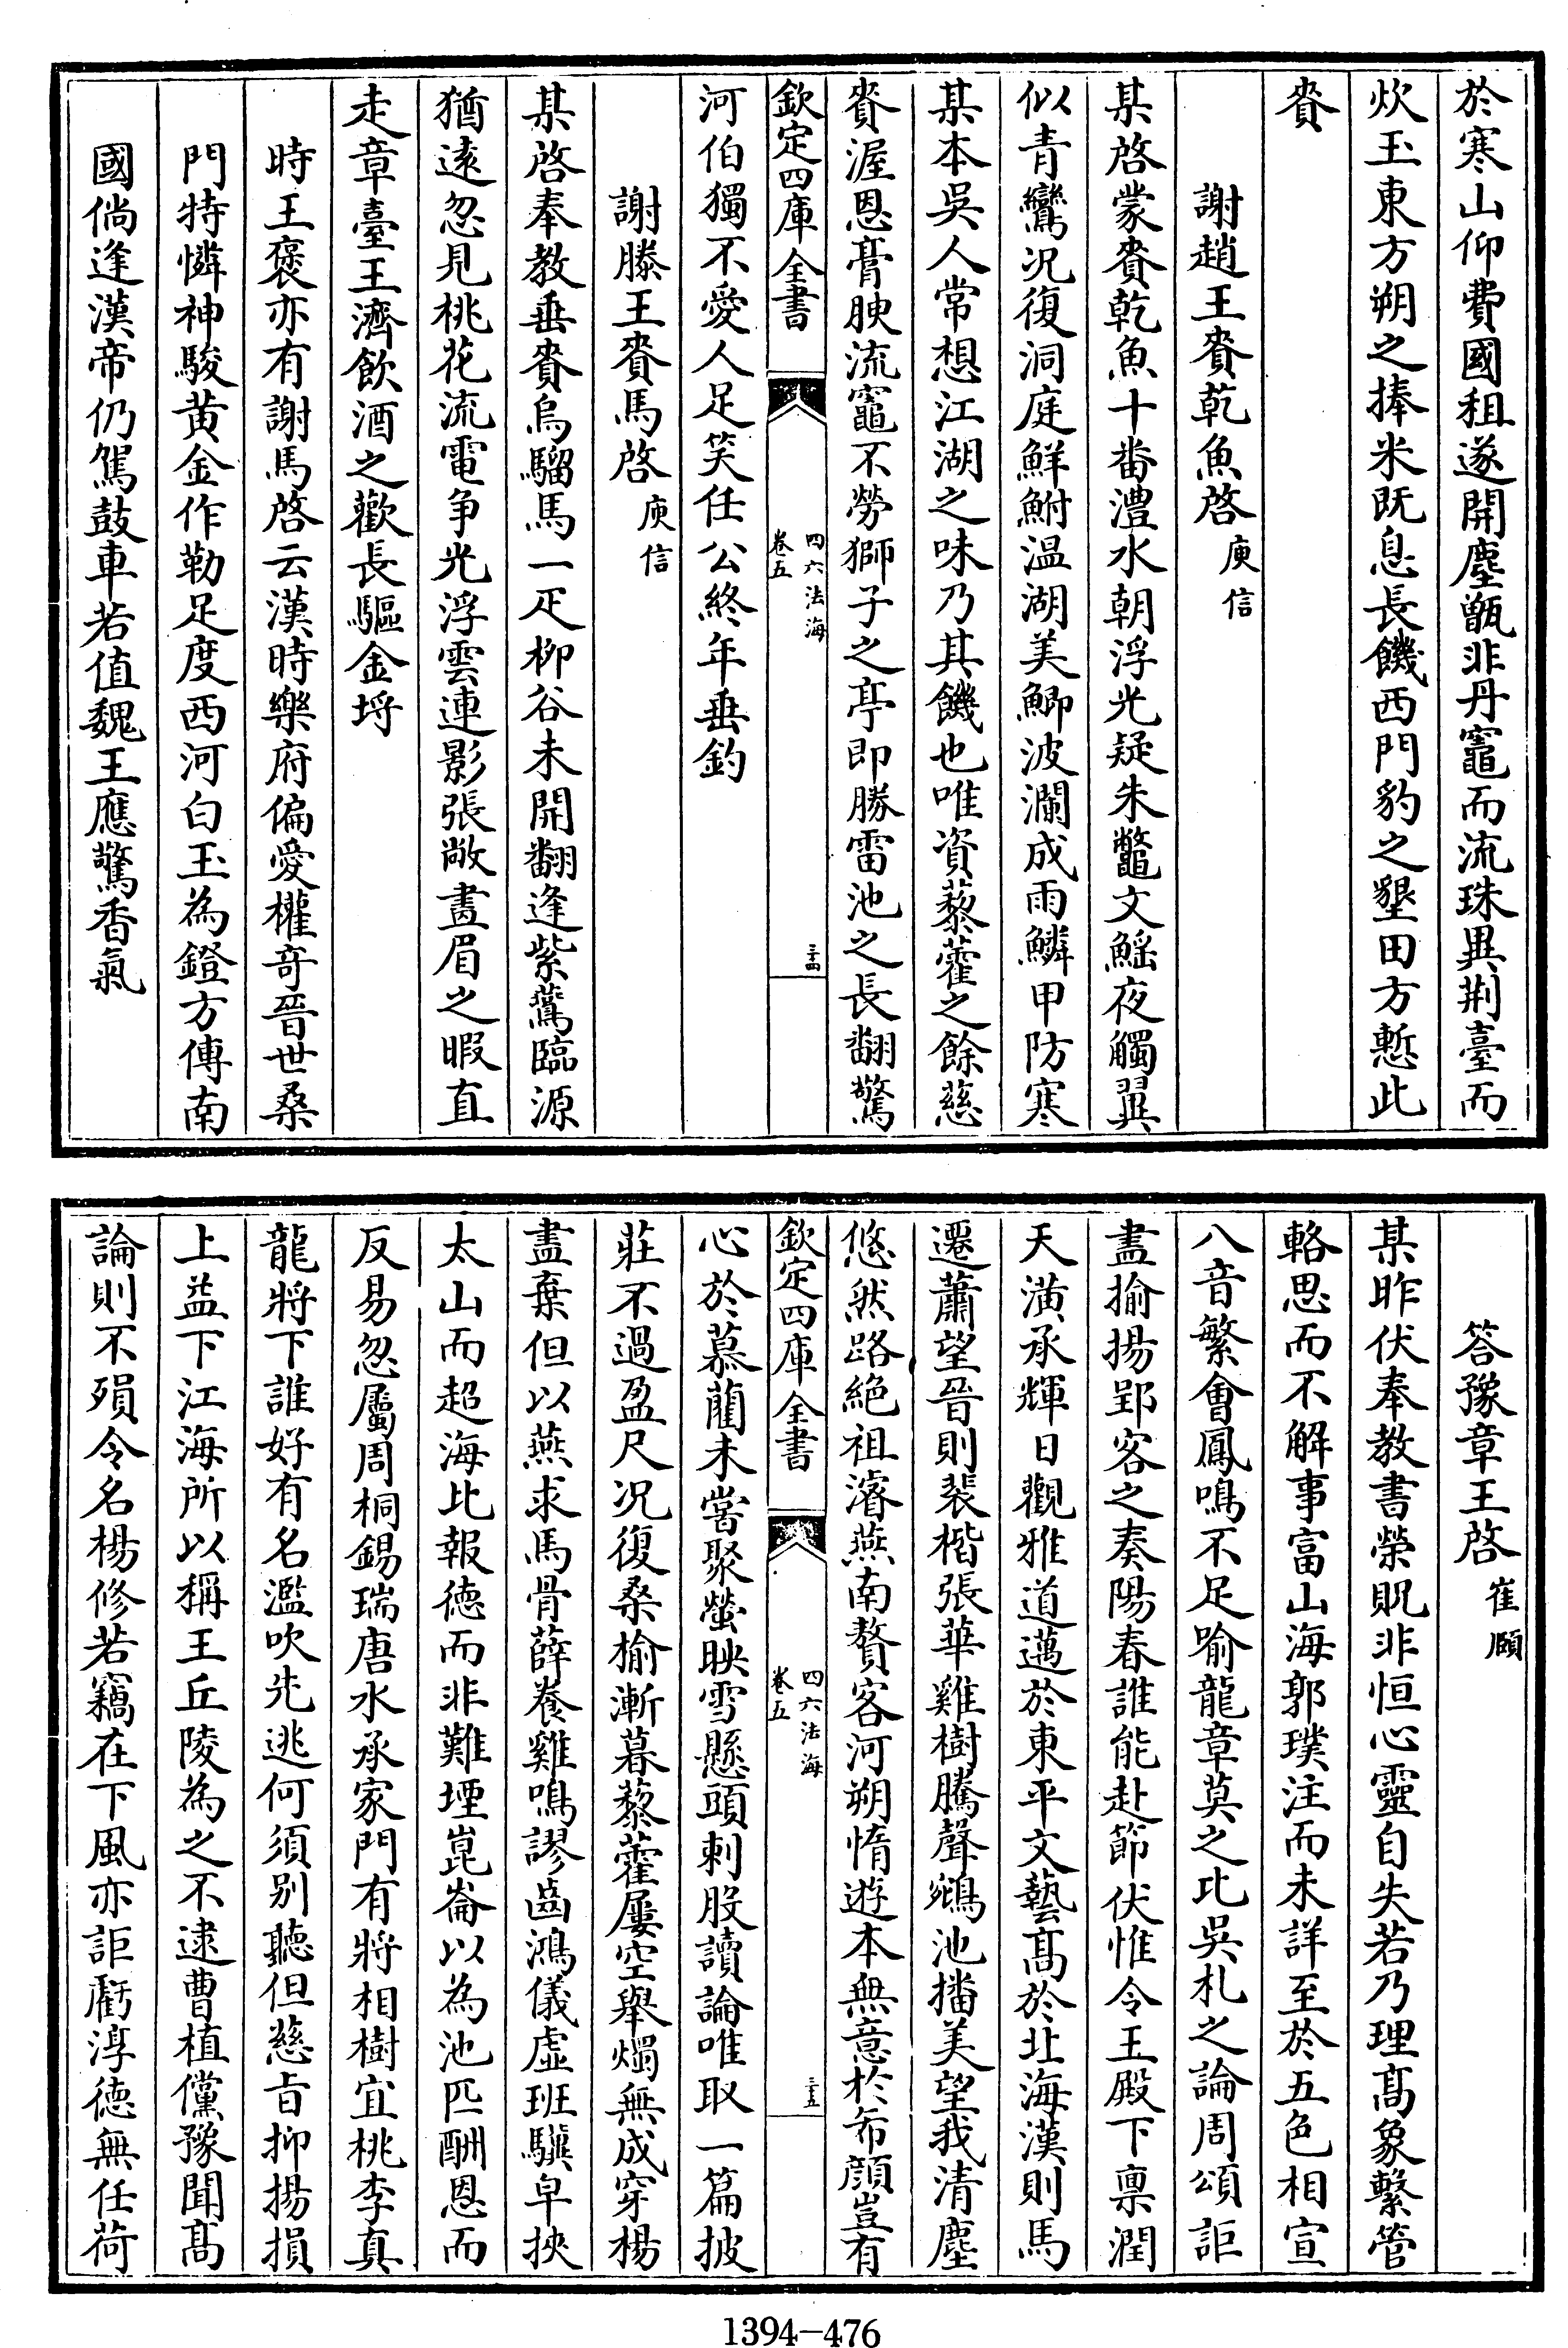 於寒山仰費國租遂開塵甑非丹竈而流珠異荆臺而
炊玉東方朔之捧米既息長饑西門豹之墾田方慙此
賚
謝趙王賚乾魚啓庾信
某啓蒙賚乾魚十番澧水朝浮光疑朱鼈文鰩夜觸翼
似青鸞况復洞庭鮮鮒温湖美鯽波瀾成雨鱗甲防寒
某本吳人常想江湖之味乃其饑也唯資藜藿之餘慈
賚渥恩膏腴流竈不勞獅子之亭即勝雷池之長翻驚
欽定四庫全書
四六法海
卷五
三十四
河伯獨不愛人足笑任公終年垂釣
謝滕王賚馬啓庾信
某啓奉教垂賚烏騮馬一疋柳谷未開翻逢紫鷰臨源
猶逺忽見桃花流電争光浮雲連影張敞畫眉之暇直
走章臺王濟飲酒之歡長驅金埒
時王褒亦有謝馬啓云漢時樂府偏愛權奇晉世桑
門特憐神駿黄金作勒足度西河白玉為鐙方傳南
國倘逢漢帝仍駕鼓車若值魏王應驚香氣
答豫章王啓崔頤
某昨伏奉教書榮貺非恒心靈自失若乃理髙象繫管
輅思而不解事富山海郭璞注而未詳至於五色相宣
八音繁會鳳鳴不足喻龍章莫之比吳札之論周頌詎
盡揄揚郢客之奏陽春誰能赴節伏惟令王殿下禀潤
天潢承輝日觀雅道邁於東平文藝髙於北海漢則馬
遷蕭望晉則裴楷張華雞樹騰聲鵷池播美望我清塵
悠然路絶祖濬燕南贅客河朔惰遊本無意於布顔豈有
欽定四庫全書
四六法海
卷五
三十五
心於慕藺未嘗聚螢映雪懸頭刺股讀論唯取一篇披
莊不過盈尺况復桑榆漸暮藜藿屢空舉燭無成穿楊
盡棄但以燕求馬骨薛養雞鳴謬齒鴻儀虚班驥皁挾
太山而超海比報德而非難堙崑崙以為池匹酬恩而
反易忽屬周桐錫瑞唐水承家門有將相樹宜桃李真
龍將下誰好有名濫吹先逃何須别聽但慈㫖抑揚損
上益下江海所以稱王丘陵為之不逮曹植儻豫聞髙
論則不殞令名楊修若竊在下風亦詎虧淳德無任荷
1394—476